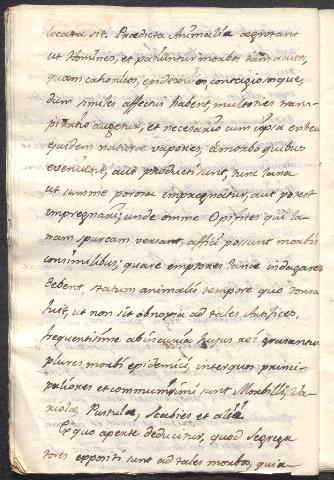 locata sit. Praedicta Animalia aegrotant
ut Homines, et patiuntur morbos tam acutos,
quam cronicos, epidemicos, contagiososque,
dum similes affectus habent, multoties trans-
piratio augetur, et necesario cum ipsa
ejusdem naturae vapores, a morbo quibus
eveniunt, aut producti sunt, hinc lana
ut summe porosa impregnatur, aut potest
impregnari; unde omne Opifices qui la-
nam spurcam versant, affici possunt morbis
consimilibus; quare emptores lanae indagare
debent, statum animalis tempore quo tonsa
fuit, ut non sit obnoxia ad tales Artifices.
frequentissime ab incuria hujus rei grasantur
plures morbi epidemici, inter quos princi-
paliores et communissimi sunt Morbilli, Va-
riolae, Pustulae, Scabies et alia
Ex quo aperte deducitur, quod Segrega-
tores expositi sunt ad tales morbos, quia